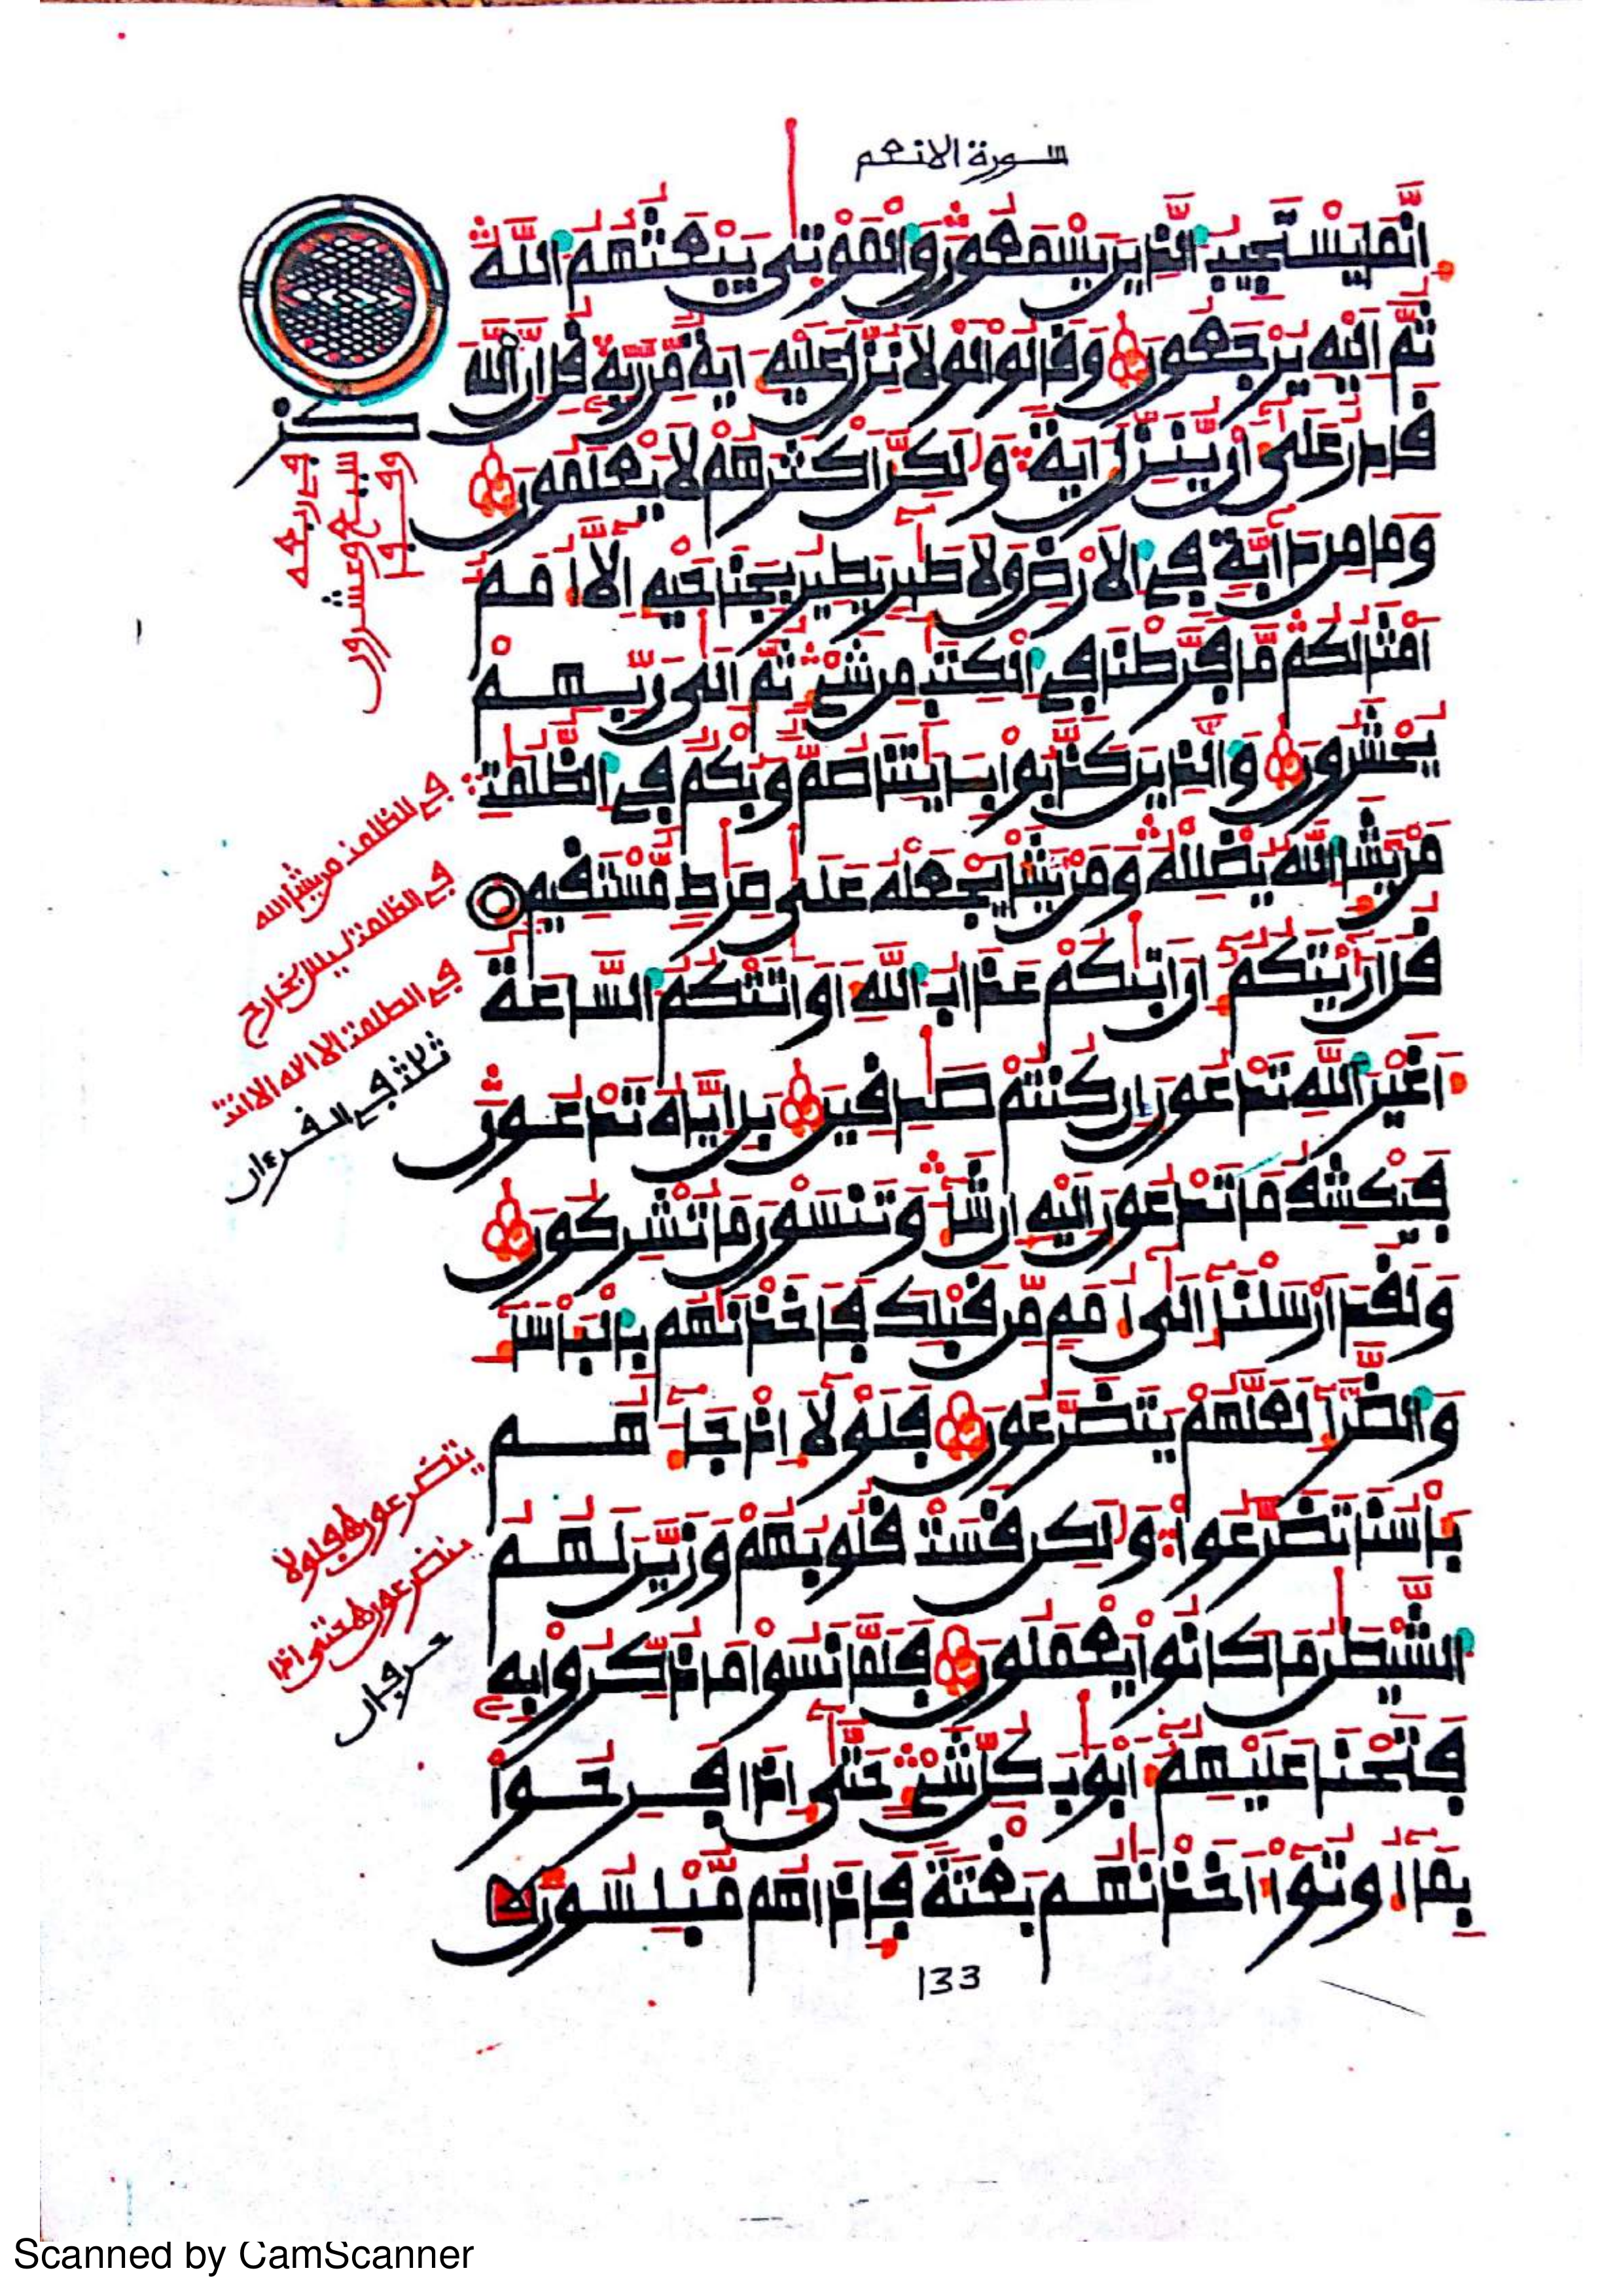 سورة الانعم
إِنَّمَا يَسْتَجِيبُ الذِينَ يَسْمَعُونَ وَالْمَوْتَىٰ يَبْعَثُهُمُ اللَّهُ
ثُمَّ إِلَيْهِ يُرْجَعُونَ وَقَالُوا لَوْلَا نُزِّلَ عَلَيْهِ ءَايَةٌ مِّن رَّبِّهِ قُلْ إِنَّ اللَّهَ
قَادِرٌ عَلَىٰ أَن يُنَزِّلَ ءَايَةً وَلَٰكِنَّ أَكْثَرَهُمْ لَا يَعْلَمُونَ
وَمَا مِن دَابَّةٍ فِي الْأَرْضِ وَلَا طَٰئِرٍ يَطِيرُ بِجَنَاحَيْهِ إِلَّا أُمَمٌ
أَمْثَالُكُم مَّا فَرَّطْنَا فِي الْكِتَٰبِ مِن شَيْءٍ ثُمَّ إِلَىٰ رَبِّهِمْ
يُحْشَرُونَ وَالذِينَ كَذَّبُوا بِـَٔايَٰتِنَا صُمٌّ وَبُكْمٌ فِي الظُّلُمَٰتِ
مَنْ يَشَإِ اللَّهُ يُضْلِلْهُ وَمَنْ يَشَأْ يَجْعَلْهُ عَلَىٰ صِرَٰطٍ مُّسْتَقِيمٍ
قُلْ أَرَٰيْتَكُمْ إِنْ أَتَىٰكُمْ عَذَابُ اللَّهِ أَوْ أَتَتْكُمُ السَّاعَةُ
أَغَيْرَ اللَّهِ تَدْعُونَ إِن كُنتُمْ صَٰدِقِينَ بَلْ إِيَّاهُ تَدْعُونَ
فَيَكْشِفُ مَا تَدْعُونَ إِلَيْهِ إِن شَآءَ وَتَنسَوْنَ مَا تُشْرِكُونَ
وَلَقَدْ أَرْسَلْنَا إِلَىٰ أُمَمٍ مِّن قَبْلِكَ فَأَخَذْنَٰهُم بِالْبَأْسَآءِ
وَالضَّرَّآءِ لَعَلَّهُمْ يَتَضَرَّعُونَ فَلَوْلَا إِذْ جَآءَهُم
بَأْسُنَا تَضَرَّعُوا وَلَٰكِن قَسَتْ قُلُوبُهُمْ وَزَيَّنَ لَهُمُ
الشَّيْطَٰنُ مَا كَانُوا يَعْمَلُونَ فَلَمَّا نَسُوا مَا ذُكِّرُوا بِهِ
فَتَحْنَا عَلَيْهِمْ أَبْوَٰبَ كُلِّ شَيْءٍ حَتَّىٰ إِذَا فَرِحُوا
بِمَا أُوتُوا أَخَذْنَٰهُم بَغْتَةً فَإِذَا هُم مُّبْلِسُونَ
في الظلمت من يشا الله
في الظلمت ليس بخارج
في الظلمت ان لا اله الا انت
ثلاث في القرءان
يتضرعون فلولا
يتضرعون حتى اذا
حرفان
133
Scanned by CamScanner